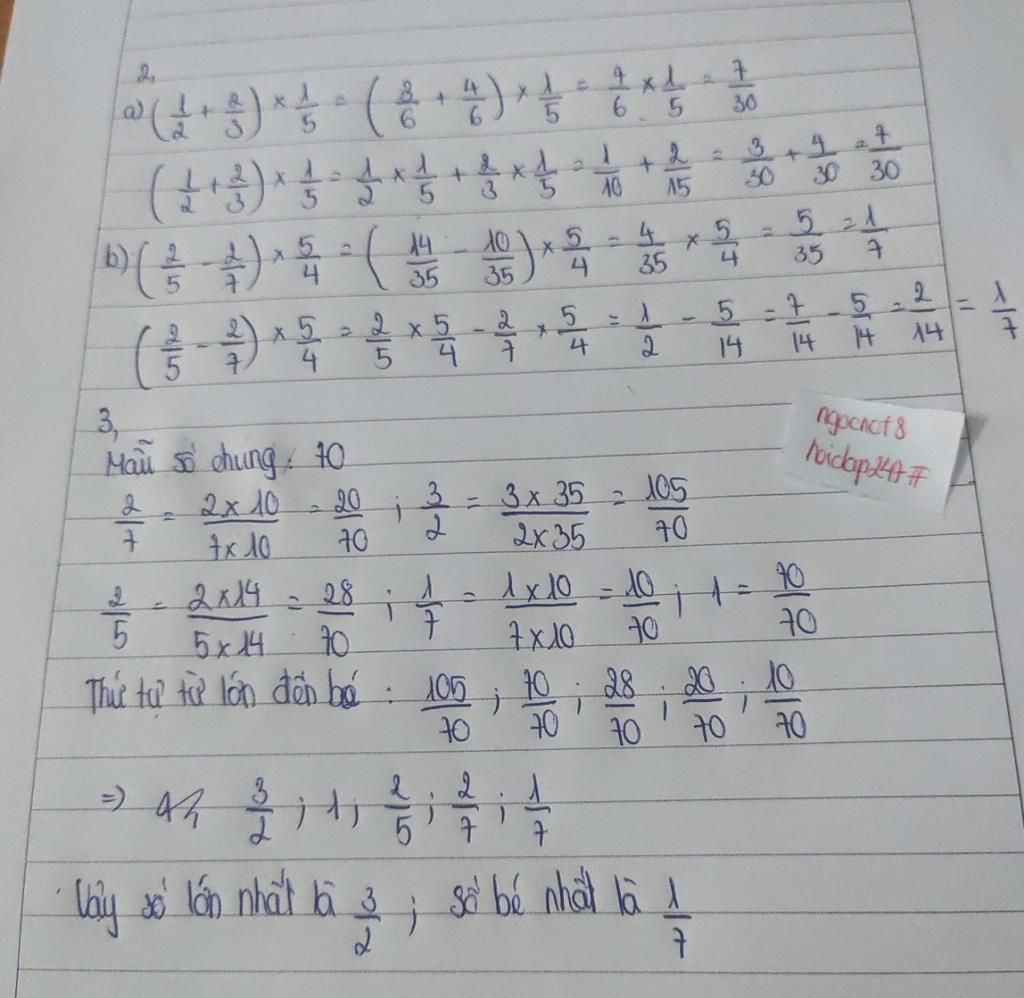 2,
a) (1/2 + 2/3) × 1/5 = (3/6 + 4/6) × 1/5 = 7/6 × 1/5 = 7/30
(1/2 + 2/3) × 1/5 = 1/2 × 1/5 + 2/3 × 1/5 = 1/10 + 2/15 = 3/30 + 4/30 = 7/30
b) (2/5 - 2/7) × 5/4 = (14/35 - 10/35) × 5/4 = 4/35 × 5/4 = 5/35 = 1/7
(2/5 - 2/7) × 5/4 = 2/5 × 5/4 - 2/7 × 5/4 = 1/2 - 5/14 = 7/14 - 5/14 = 2/14 = 1/7
3,
Mẫu số chung: 70
2/7 = 2×10/7×10 = 20/70 ; 3/2 = 3×35/2×35 = 105/70
2/5 = 2×14/5×14 = 28/70 ; 1/7 = 1×10/7×10 = 10/70 ; 1 = 70/70
Thứ tự từ lớn đến bé : 105/70 ; 70/70 ; 28/70 ; 20/70 ; 10/70
=> 3/2 ; 1 ; 2/5 ; 2/7 ; 1/7
Vậy số lớn nhất là 3/2 ; số bé nhất là 1/7
ngocnct8
hoidap247#